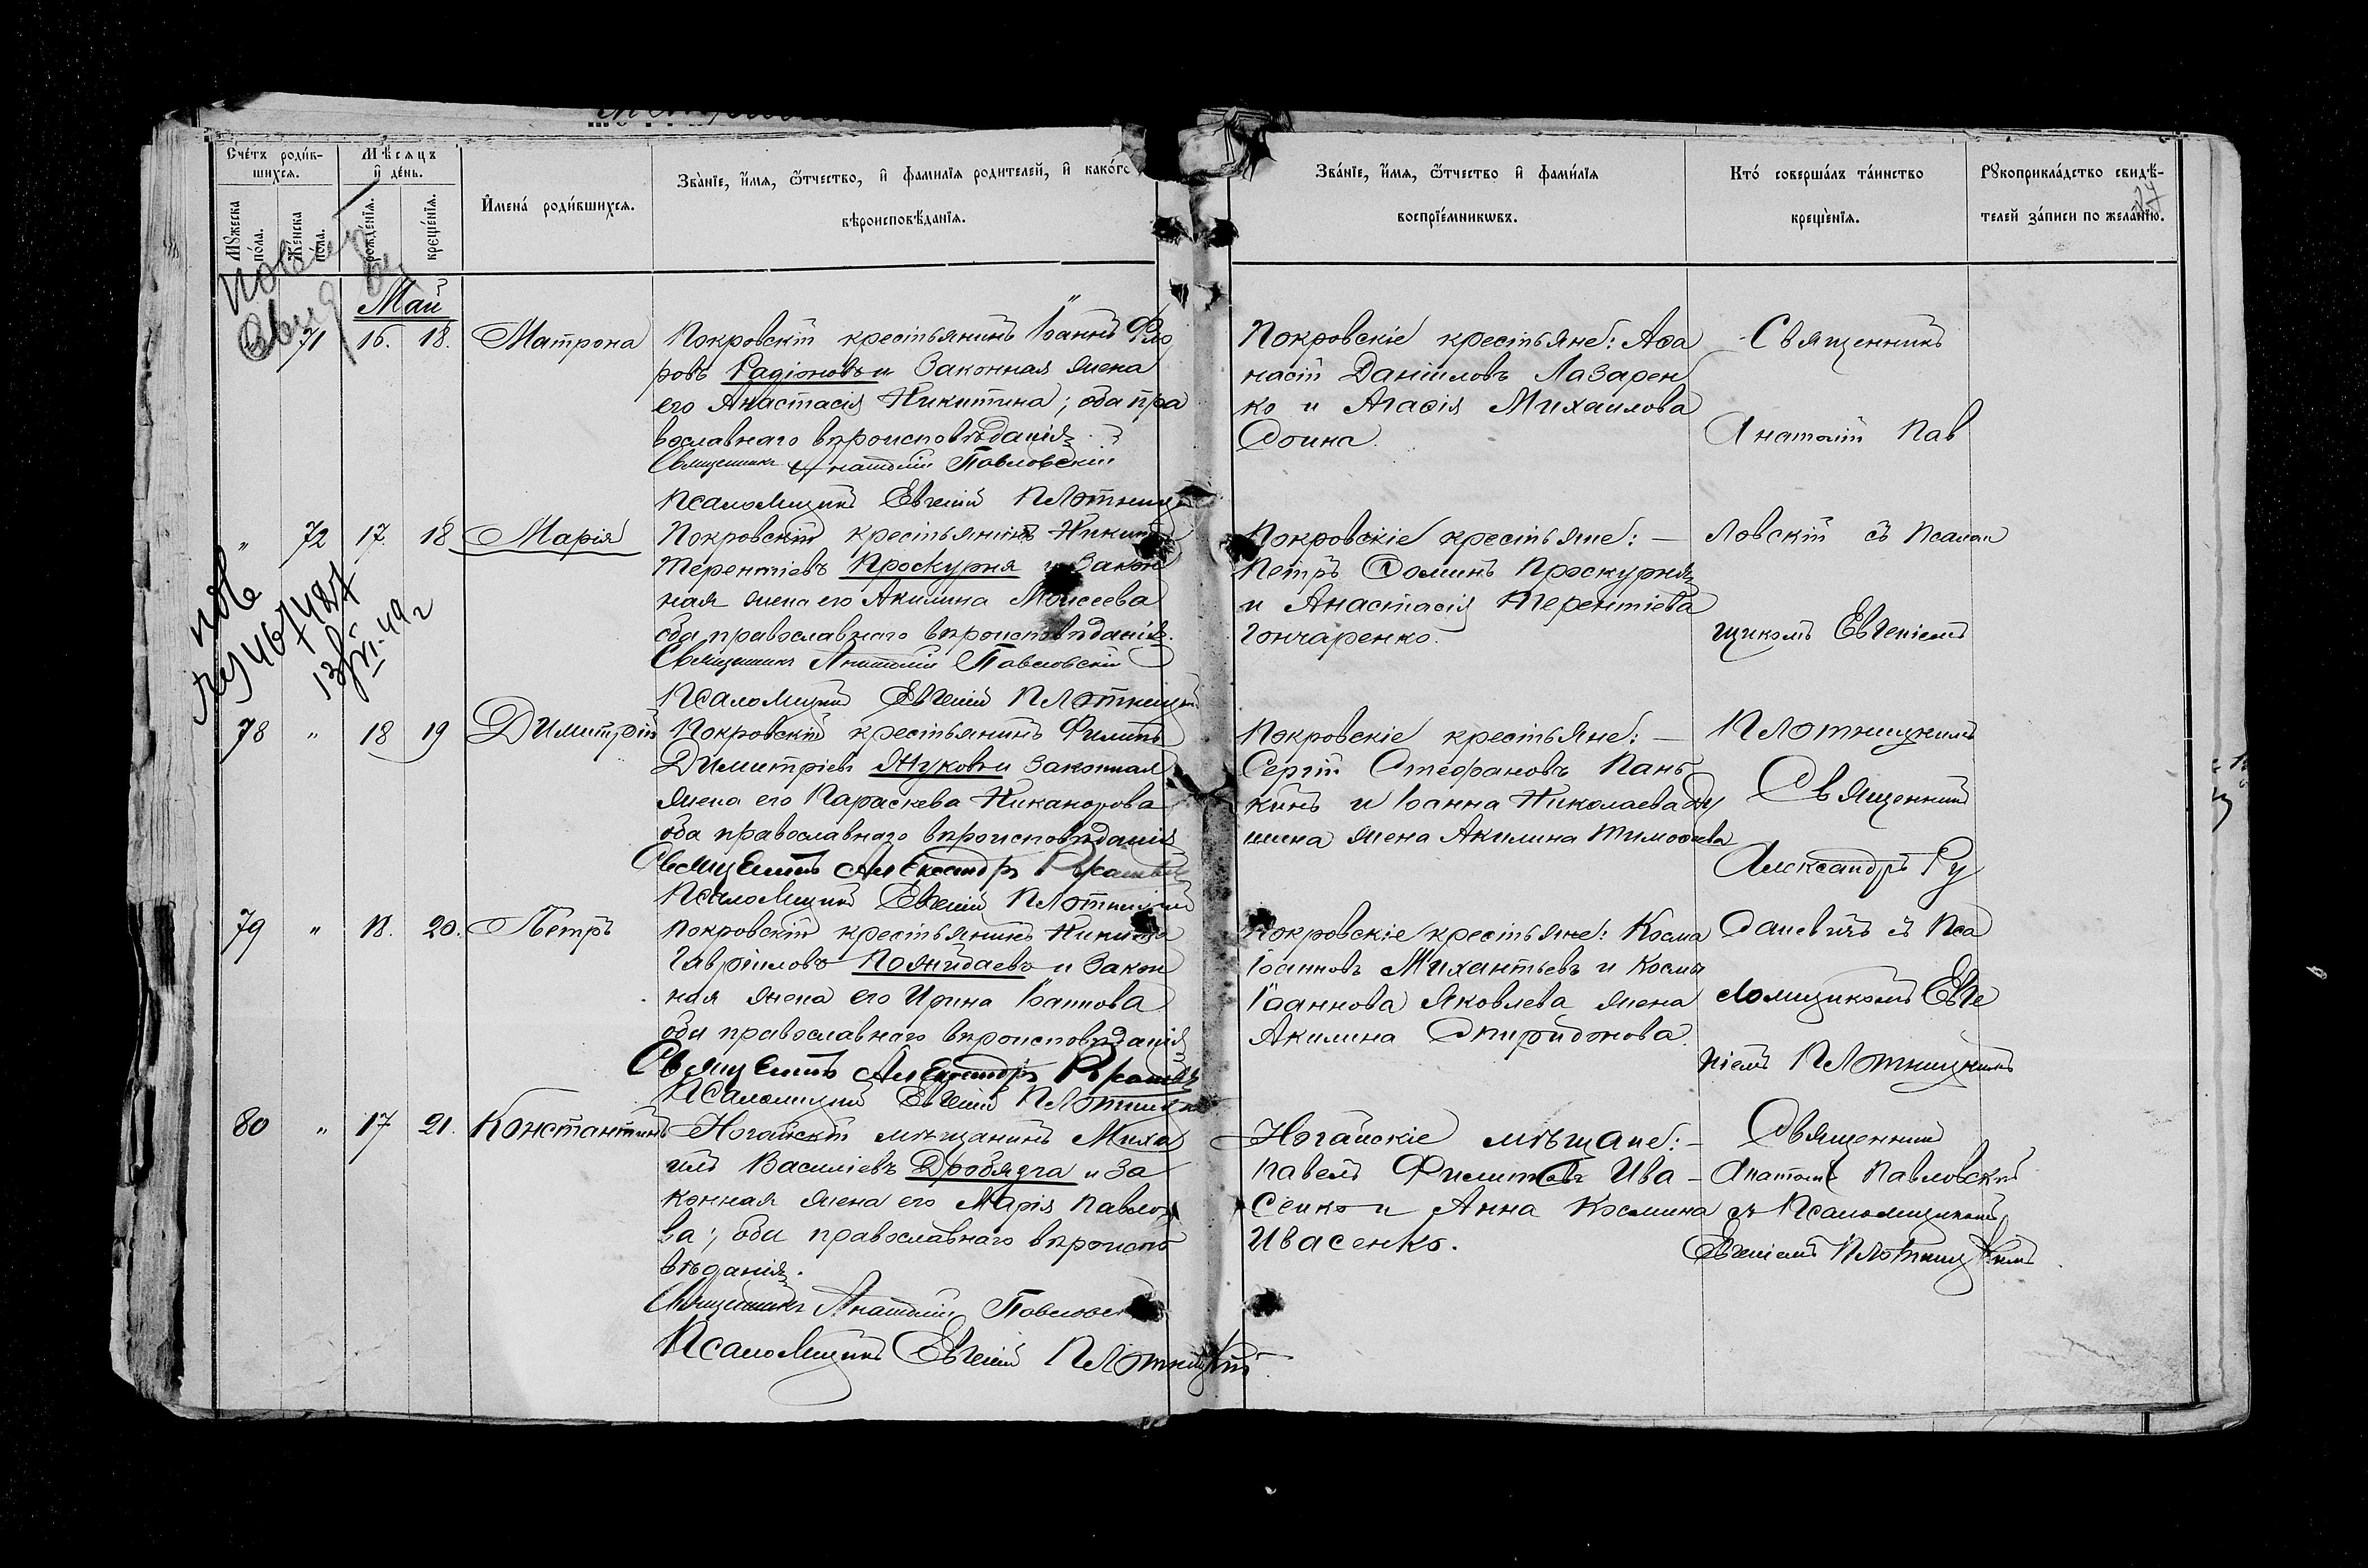 Счетъ родив-
шихся.
Мѣсяцъ
и день.
Мужеска
пола.
Женска
пола.
рожденія.
крещенія.
Имена родившихся.
Званіе, имя, отчество, и фамилія родителей, и какого
вѣроисповѣданія.
Званіе, имя, отчество и фамилія
воспріемниковъ.
Кто совершалъ таинство
крещенія.
Рукоприкладство свидѣ-
телей записи по желанію.
Май
71 16. 18. Матрона
Покровскій крестьянинъ Іоаннъ Фло
ровъ Радіоновъ и законная жена
его Анастасія Никитина; оба пра
вославнаго вѣроисповѣданія
Священникъ Анатолій Павловскій
Псаломщикъ Евгеній Плотницкій
Покровскіе крестьяне: Аѳа
насій Даніиловъ Лазарен
ко и Агаѳія Михаилова
Священникъ
Анатолій Пав
" 72 17. 18 Марія
Покровскій крестьянинъ Никита
Терентіевъ Проскурня и закон
ная жена его Акилина Моисеева
оба православнаго вѣроисповѣданія.
Священникъ Анатолій Павловскій
Псаломщикъ Евгеній Плотницкій
Покровскіе крестьяне: —
Петръ Ѳоминъ Проскурня
и Анастасія Терентіева
Гончаренко.
ловскій съ Псалом
щикомъ Евгеніемъ
Плотницкимъ
78 " 18 19 Димитрій
Покровскій крестьянинъ Филиппъ
Димитріевъ Жуковъ и законная
жена его Параскева Никанорова
оба православнаго вѣроисповѣданія
Священникъ Александръ
Псаломщикъ Евгеній Плотницкій
Покровскіе крестьяне: —
Сергій Стефановъ Пань
кинъ и Іоанна Николаева
жена Акилина Тимоѳеева
Священникъ
Александръ Ру
79 " 18. 20. Петръ
Покровскій крестьянинъ Никита
Гавріиловъ Пожидаевъ и закон
ная жена его Ирина Іоаннова
оба православнаго вѣроисповѣданія
Священникъ Александръ
Псаломщикъ Евгеній Плотницкій
Покровскіе крестьяне: Косма
Іоанновъ и Космы
Іоаннова Яковлева жена
Акилина Спиридонова.
даневичъ съ Пса
ломщикомъ Евге
ніемъ Плотницкимъ
80 " 17 21. Константинъ
Ногайскій мѣщанинъ Миха
илъ Василіевъ Дробязга и за
конная жена его Марія Павло
ва; оба православнаго вѣроиспо
вѣданія.
Священникъ Анатолій Павловскій
Псаломщикъ Евгеній Плотницкій
Ногайскіе мѣщане: —
Павелъ Филипповъ Ива
сенко и Анна Космина
Ивасенко.
Священникъ
Анатолій Павловскій
съ Псаломщикомъ
Евгеніемъ Плотницкимъ